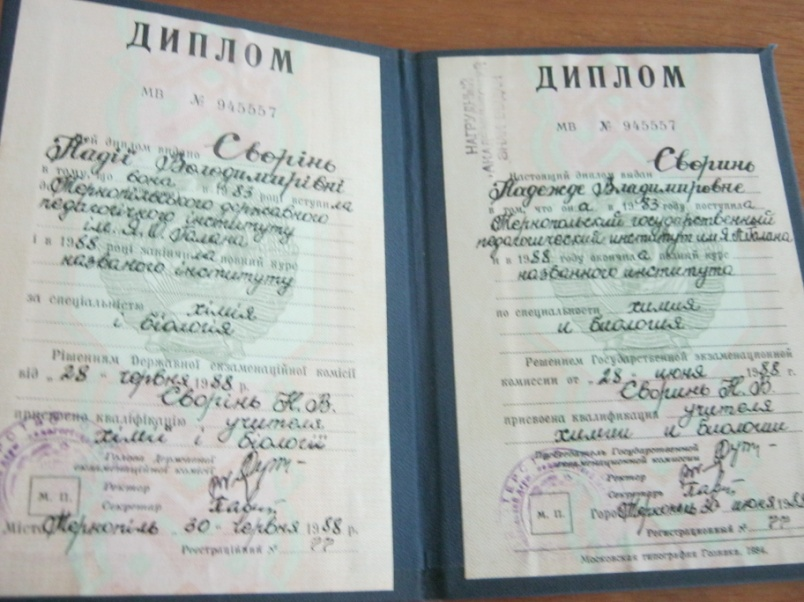 ДИПЛОМ
МВ № 945557
Цей диплом видано Сворінь
Надії Володимирівні
в тому, що вона в 1983 році вступила
до Тернопільського державного
педагогічного інституту
ім. Я. О. Галана
і в 1988 році закінчила повний курс
названого інституту
за спеціальністю хімія
і біологія
Рішенням Державної екзаменаційної комісії
від „ 28 “ червня 1988 р.
Сворінь Н. В.
присвоєно кваліфікацію учителя
хімії і біології
Голова Державної
екзаменаційної комісії
Ректор
Секретар
М. П.
Місто Тернопіль „ 30 “ червня 1988 р.
Реєстраційний № 77
ДИПЛОМ
НАГРУДНЫЙ
МВ № 945557
Настоящий диплом выдан Своринь
Надежде Владимировне
в том, что она в 1983 году поступила
в Тернопольский государственный
педагогический институт им Я. Галана
и в 1988 году окончила полный курс
названного института
по специальности химия
и биология
Решением Государственной экзаменационной
комиссии от „ 28 “ июня 1988 г.
Своринь Н. В.
присвоена квалификация учителя
химии и биологии
Председатель Государственной
экзаменационной комиссии
Ректор
Секретарь
М. П.
Город 30 июня 1988
Регистрационный № 77
Московская типография Гознака. 1984.